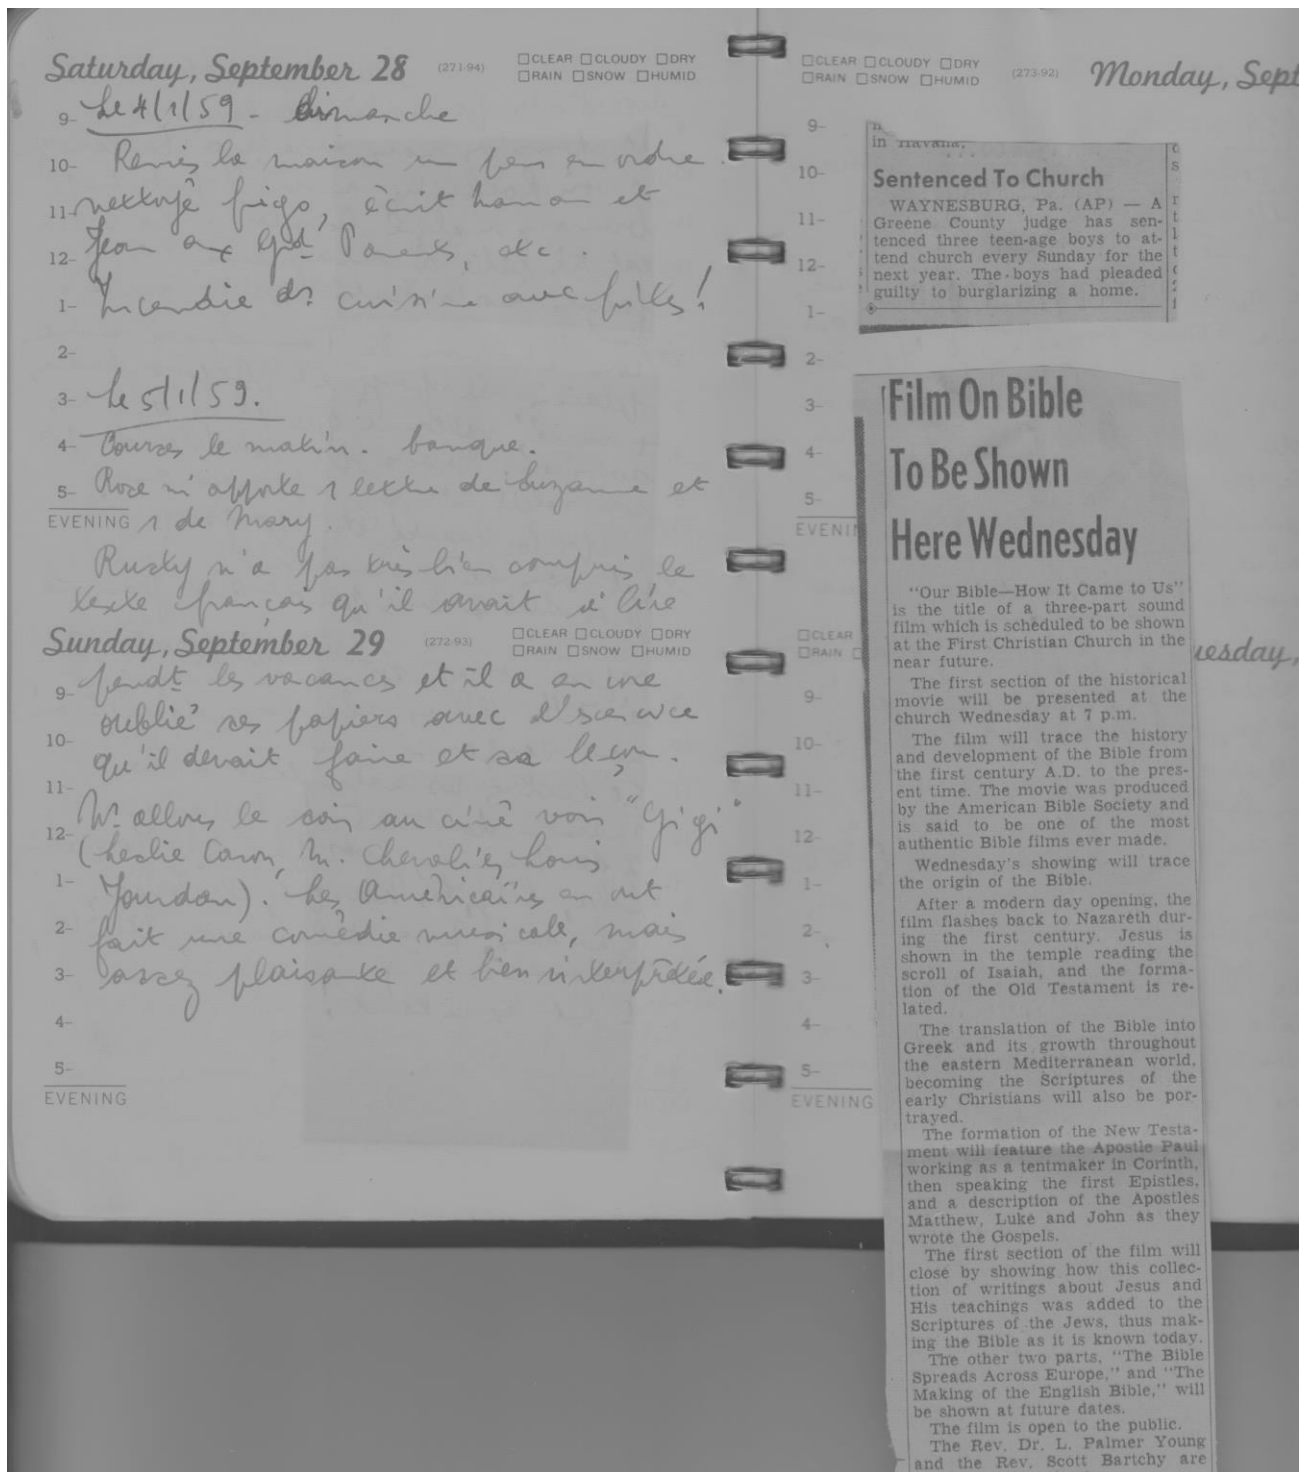 Saturday, September 28 (271-94) □CLEAR □CLOUDY □DRY
□RAIN □SNOW □HUMID
9- Le 4/1/59 - dimanche
10- Remis la maison un peu en ordre.
11- nettoyé frigo, écrit maman et
12- Jean aux Gds Parents, etc.
1- Incendie ds cuisine avec frites!
2-
3- Le 5/1/59.
4- Courses le matin. banque.
5- Rose m'apporte 1 lettre de Suzanne et
EVENING 1 de Mary.
Rusty n'a pas très bien compris le
texte français qu'il avait à lire
Sunday, September 29 (272-93) □CLEAR □CLOUDY □DRY
□RAIN □SNOW □HUMID
9- pendt les vacances et il a
oublié ses papiers avec
10- qu'il devait faire et sa leçon.
11-
12- Ns allons le soir au ciné voir "Gigi"
(Leslie Caron, M. Chevalier, Louis
1- Jourdan). Les Américains en ont
2- fait une comédie musicale, mais
3- assez plaisante et bien interprétée.
4-
5-
EVENING
□CLEAR □CLOUDY □DRY
□RAIN □SNOW □HUMID
(273-92) Monday, Sept
9-
10-
11-
12-
1-
2-
3-
4-
5-
EVENIN
in Havana.
Sentenced To Church
WAYNESBURG, Pa. (AP) — A
Greene County judge has sen-
tenced three teen-age boys to at-
tend church every Sunday for the
next year. The boys had pleaded
guilty to burglarizing a home.
□CLEAR
□RAIN □
uesday,
9-
10-
11-
12-
1-
2-
3-
4-
5-
EVENING
Film On Bible
To Be Shown
Here Wednesday
"Our Bible—How It Came to Us"
is the title of a three-part sound
film which is scheduled to be shown
at the First Christian Church in the
near future.
The first section of the historical
movie will be presented at the
church Wednesday at 7 p.m.
The film will trace the history
and development of the Bible from
the first century A.D. to the pres-
ent time. The movie was produced
by the American Bible Society and
is said to be one of the most
authentic Bible films ever made.
Wednesday's showing will trace
the origin of the Bible.
After a modern day opening, the
film flashes back to Nazareth dur-
ing the first century. Jesus is
shown in the temple reading the
scroll of Isaiah, and the forma-
tion of the Old Testament is re-
lated.
The translation of the Bible into
Greek and its growth throughout
the eastern Mediterranean world,
becoming the Scriptures of the
early Christians will also be por-
trayed.
The formation of the New Testa-
ment will feature the Apostle Paul
working as a tentmaker in Corinth,
then speaking the first Epistles,
and a description of the Apostles
Matthew, Luke and John as they
wrote the Gospels.
The first section of the film will
close by showing how this collec-
tion of writings about Jesus and
His teachings was added to the
Scriptures of the Jews, thus mak-
ing the Bible as it is known today.
The other two parts, "The Bible
Spreads Across Europe," and "The
Making of the English Bible," will
be shown at future dates.
The film is open to the public.
The Rev. Dr. L. Palmer Young
and the Rev. Scott Bartchy are